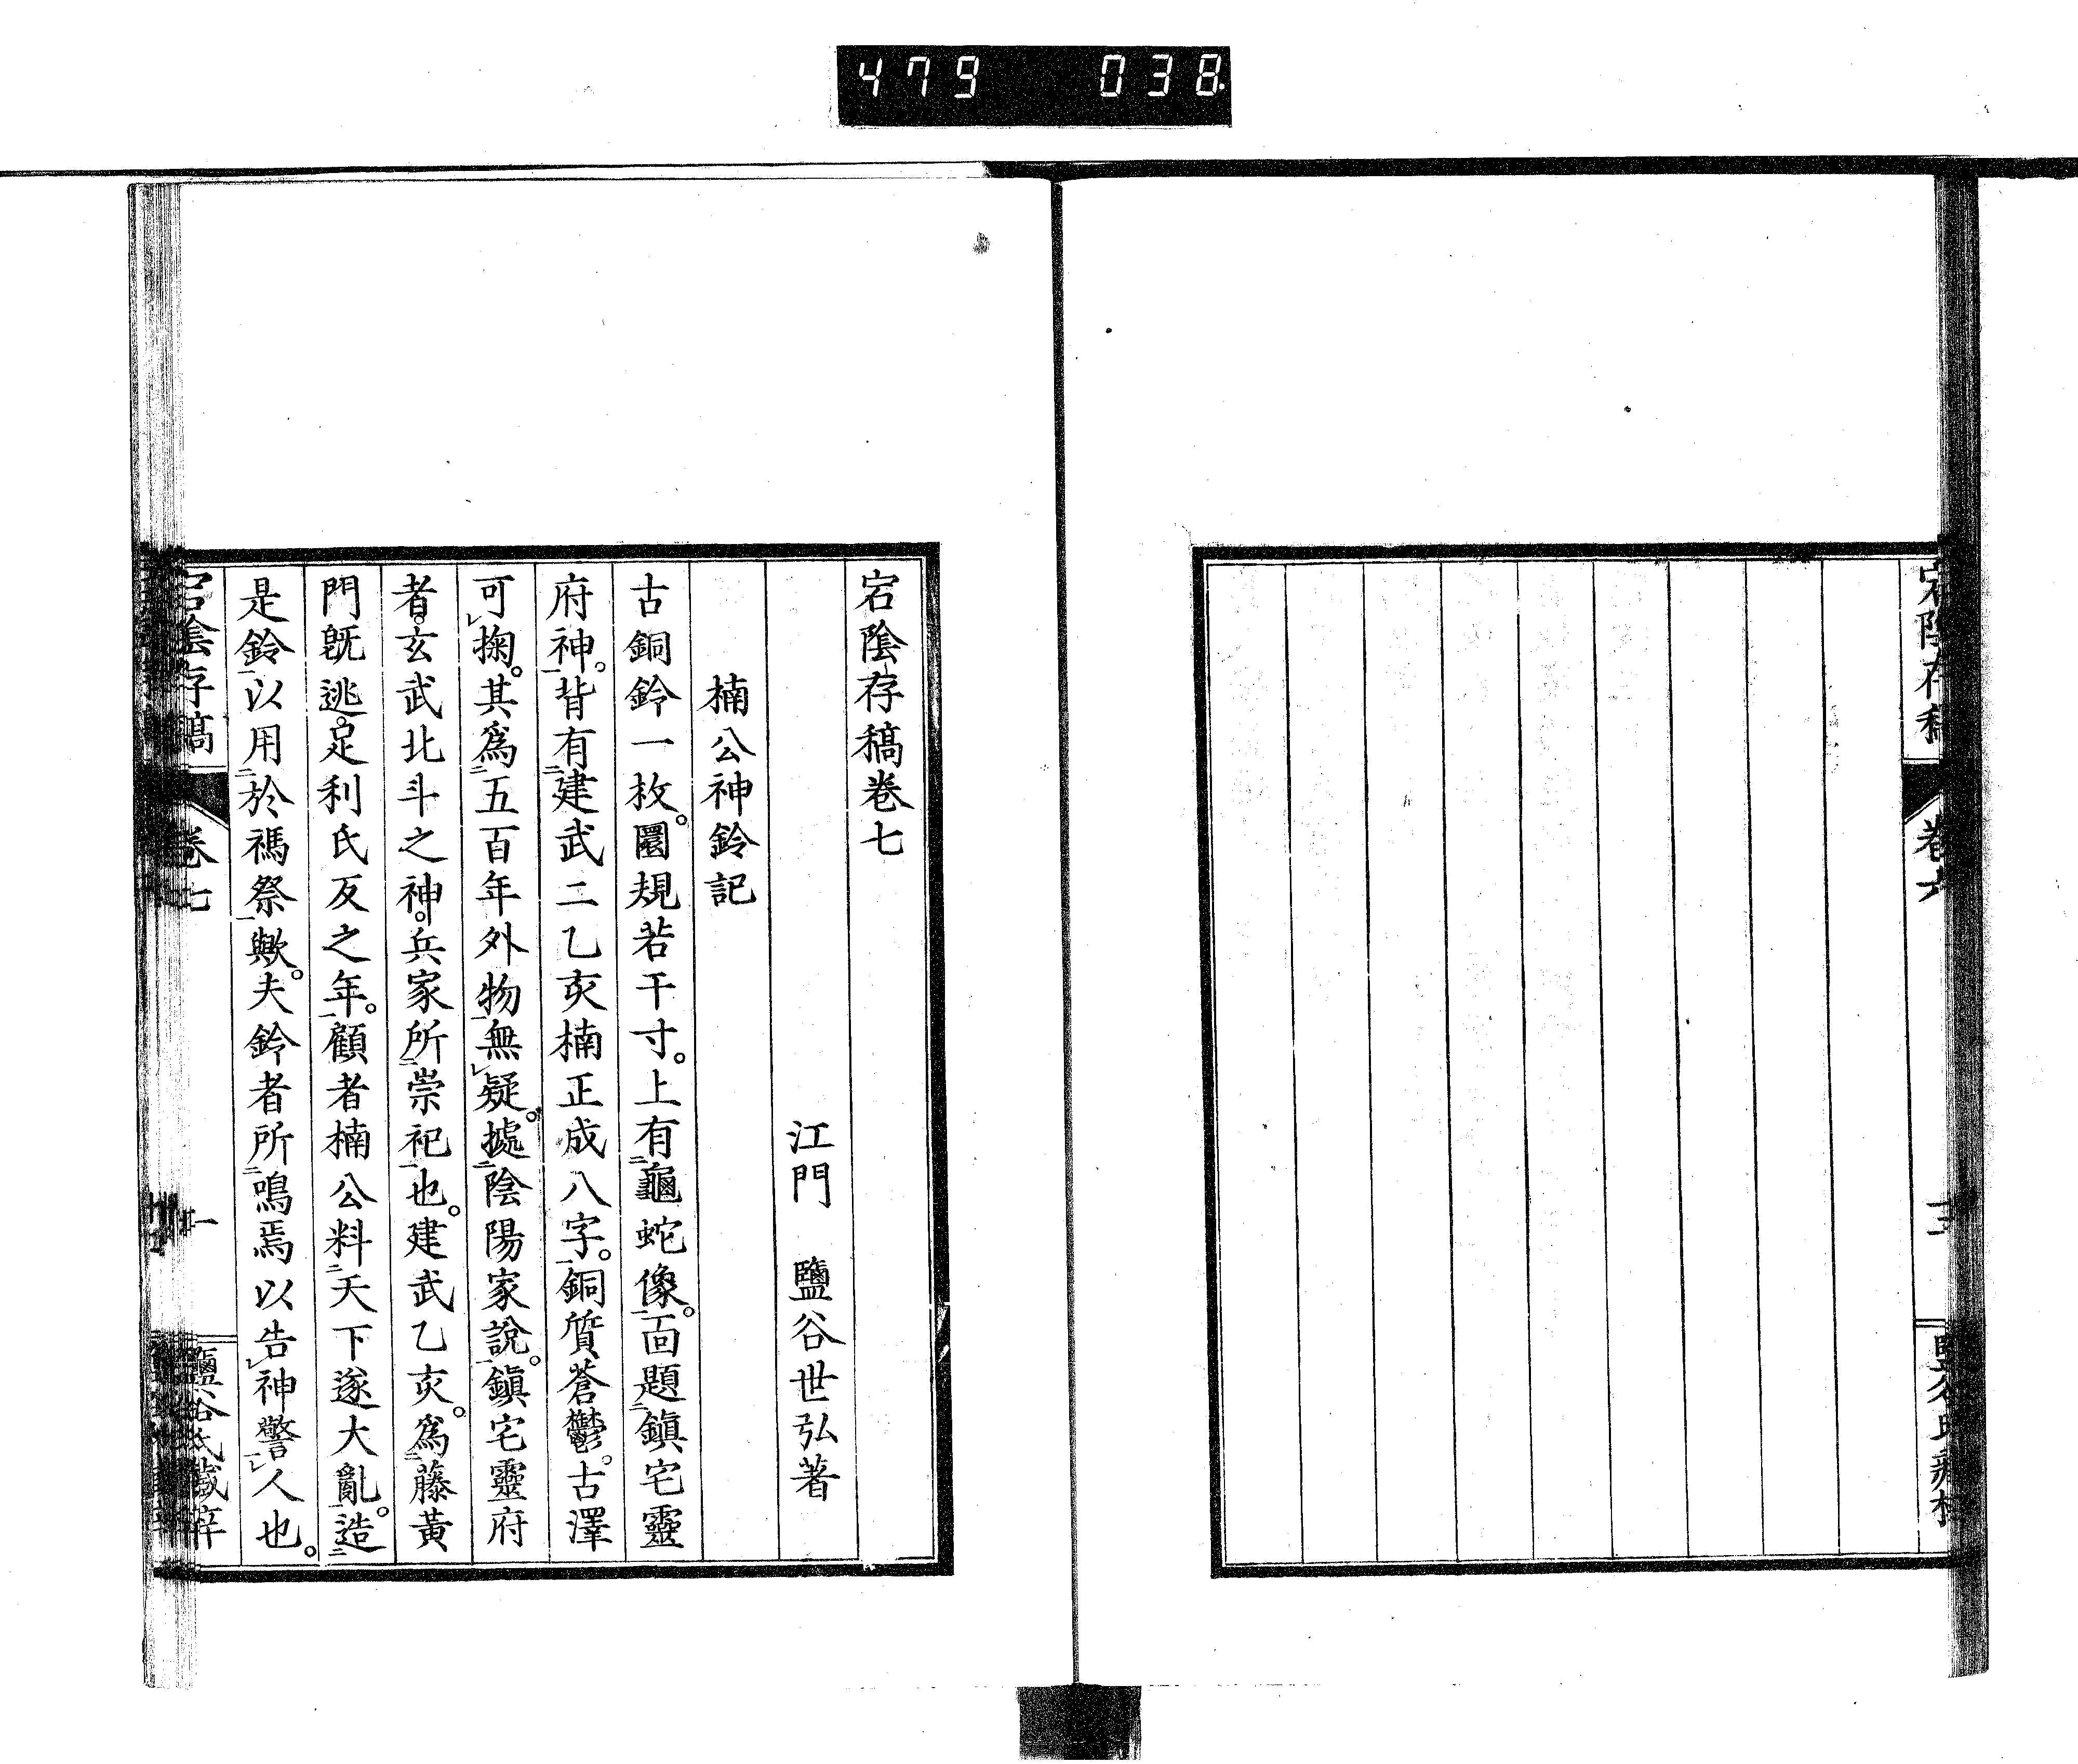 479 038
宕陰存稿
卷六
宕陰存稿卷七
江門 鹽谷世弘著
楠公神鈴記
古銅鈴一枚。圜規若干寸。上有龜蛇像。面題鎭宅靈
府神。背有建武二乙亥楠正成八字。銅質蒼鬱。古澤
可掬。其爲五百年外物無疑。據陰陽家說。鎭宅靈府
者。玄武北斗之神。兵家所崇祀也。建武乙亥。爲藤黃
門旣逃。足利氏反之年。顧者楠公料天下遂大亂。造
是鈴以用於禡祭歟。夫鈴者所鳴焉以告神警人也。
宕陰存稿
卷七
一
鹽谷氏藏梓